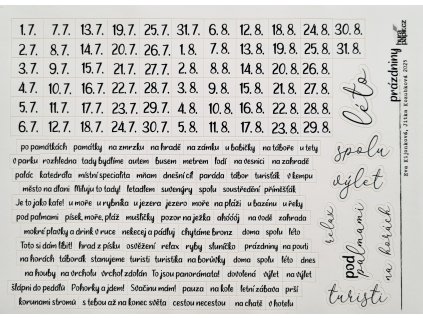 1.7. 7.7. 13.7. 19.7. 25.7. 31.7. 6.8. 12.8. 18.8. 24.8. 30.8.
2.7. 8.7. 14.7. 20.7. 26.7. 1.8. 7.8. 13.8. 19.8. 25.8. 31.8.
3.7. 9.7. 15.7. 21.7. 27.7. 2.8. 8.8. 14.8. 20.8. 26.8.
4.7. 10.7. 16.7. 22.7. 28.7. 3.8. 9.8. 15.8. 21.8. 27.8.
5.7. 11.7. 17.7. 23.7. 29.7. 4.8. 10.8. 16.8. 22.8. 28.8.
6.7. 12.7. 18.7. 24.7. 30.7. 5.8. 11.8. 17.8. 23.8. 29.8.
po památkách památky na zmrzku na hradě na zámku u babičky na táboře u tety
v parku rozhledna tady bydlíme autem busem metrem lodí na vesnici na zahradě
palác katedrála místní specialita mňam dnešní cíl paráda tábor turisťák v kempu
město na dlani Miluju to tady! letadlem suvenýry spolu soustředění příměšťák
Je to jako kafe! u moře u rybníka u jezera jezero moře na pláži u bazénu u řeky
pod palmami písek, moře, pláž mušličky pozor na ježka ahóóój na vodě zahrada
mokré plavky a drink v ruce nekecej a pádluj chytáme bronz doma spolu léto
Toto si dám líbit! hrad z písku osvěžení relax ryby sluníčko prázdniny na pouti
na horách táborák stanujeme turisti turistika na borůvky doma spolu léto dnes
na houby na vrcholu vrchol zdolán To jsou panoramata! dovolená výlet na výlet
šlápni do pedálů Pohorky a jdem! Svačinu mám! pauza na kole letní zábava prší
korunami stromů s tebou až na konec světa cestou necestou na chatě v hotelu
léto
spolu
výlet
relax
pod palmami
na horách
turisti
prázdniny